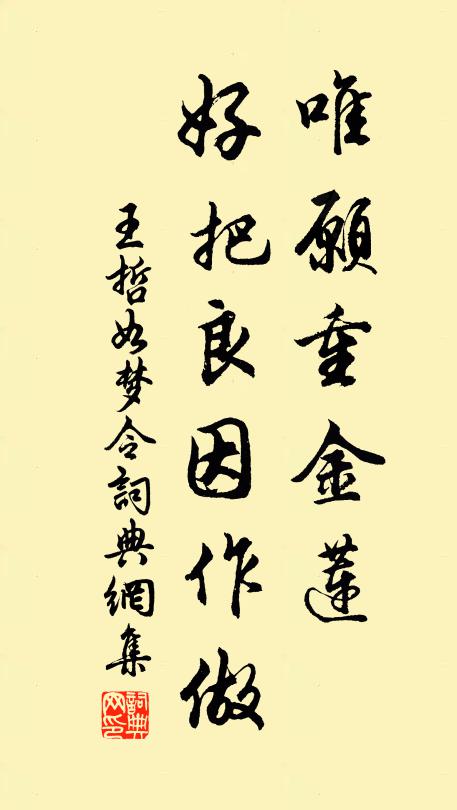 唯願重金蓮
好把良因作做
王哲如梦令詞典網集
詞典网印